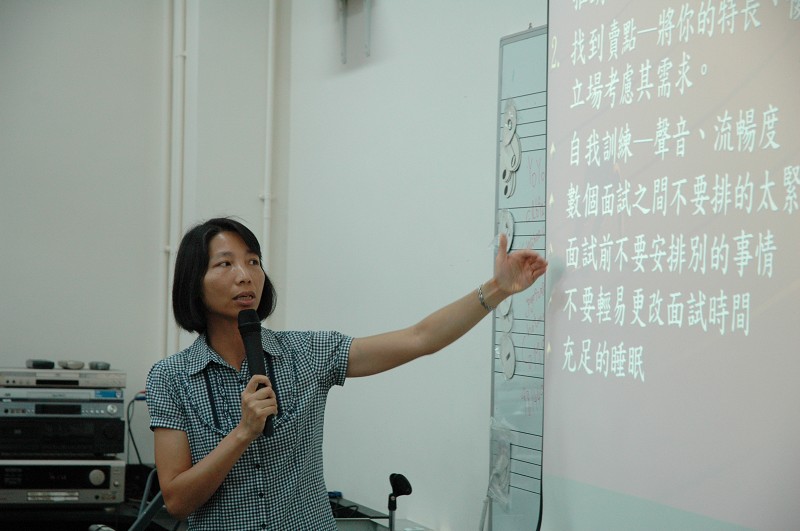 2. 找到賣點—將你的特長、
立場考慮其需求。
自我訓練—聲音、流暢度
數個面試之間不要排的太緊
面試前不要安排別的事情
不要輕易更改面試時間
充足的睡眠